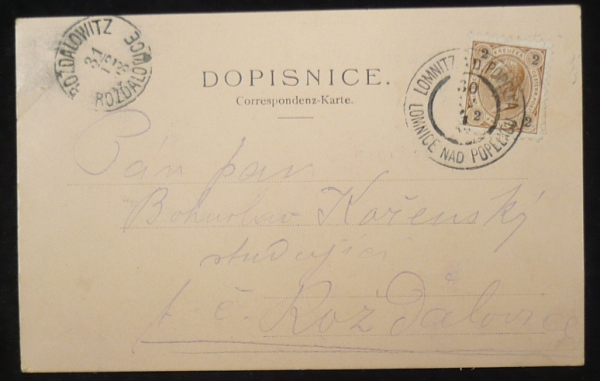 ROZDALOWITZ
ROŽDALOVICE
31
DOPISNICE.
Correspondenz-Karte.
LOMNITZ
LOMNICE NAD POPELKOU
30
2 2
2 2
Pán pan
Bohuslav Kořenský
studující
t. č. Rožďalovice